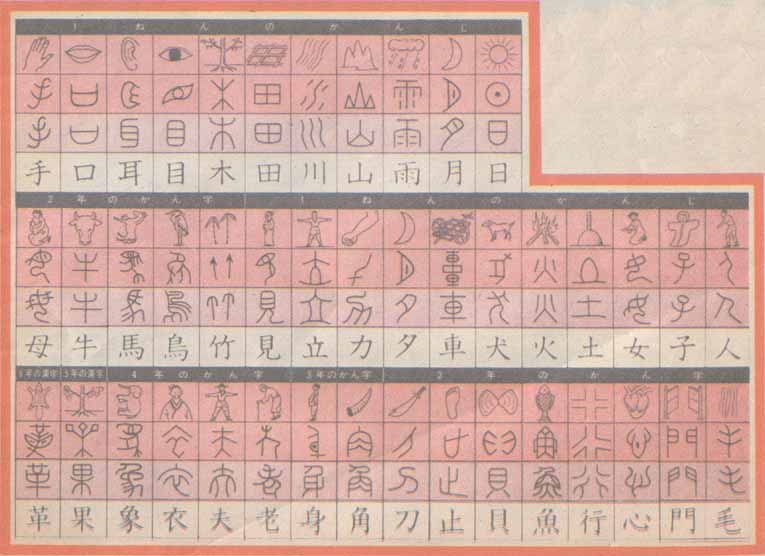 1ねんのかんじ
手 口 耳 目 木 田 川 山 雨 月 日
2年のかん字 1ねんのかんじ
母 牛 馬 鳥 竹 見 立 力 夕 車 犬 火 土 女 子 人
6年の漢字 5年の漢字 4年のかん字 3年のかん字 2年のかん字
革 果 象 衣 夫 老 身 角 刀 止 貝 魚 行 心 門 毛